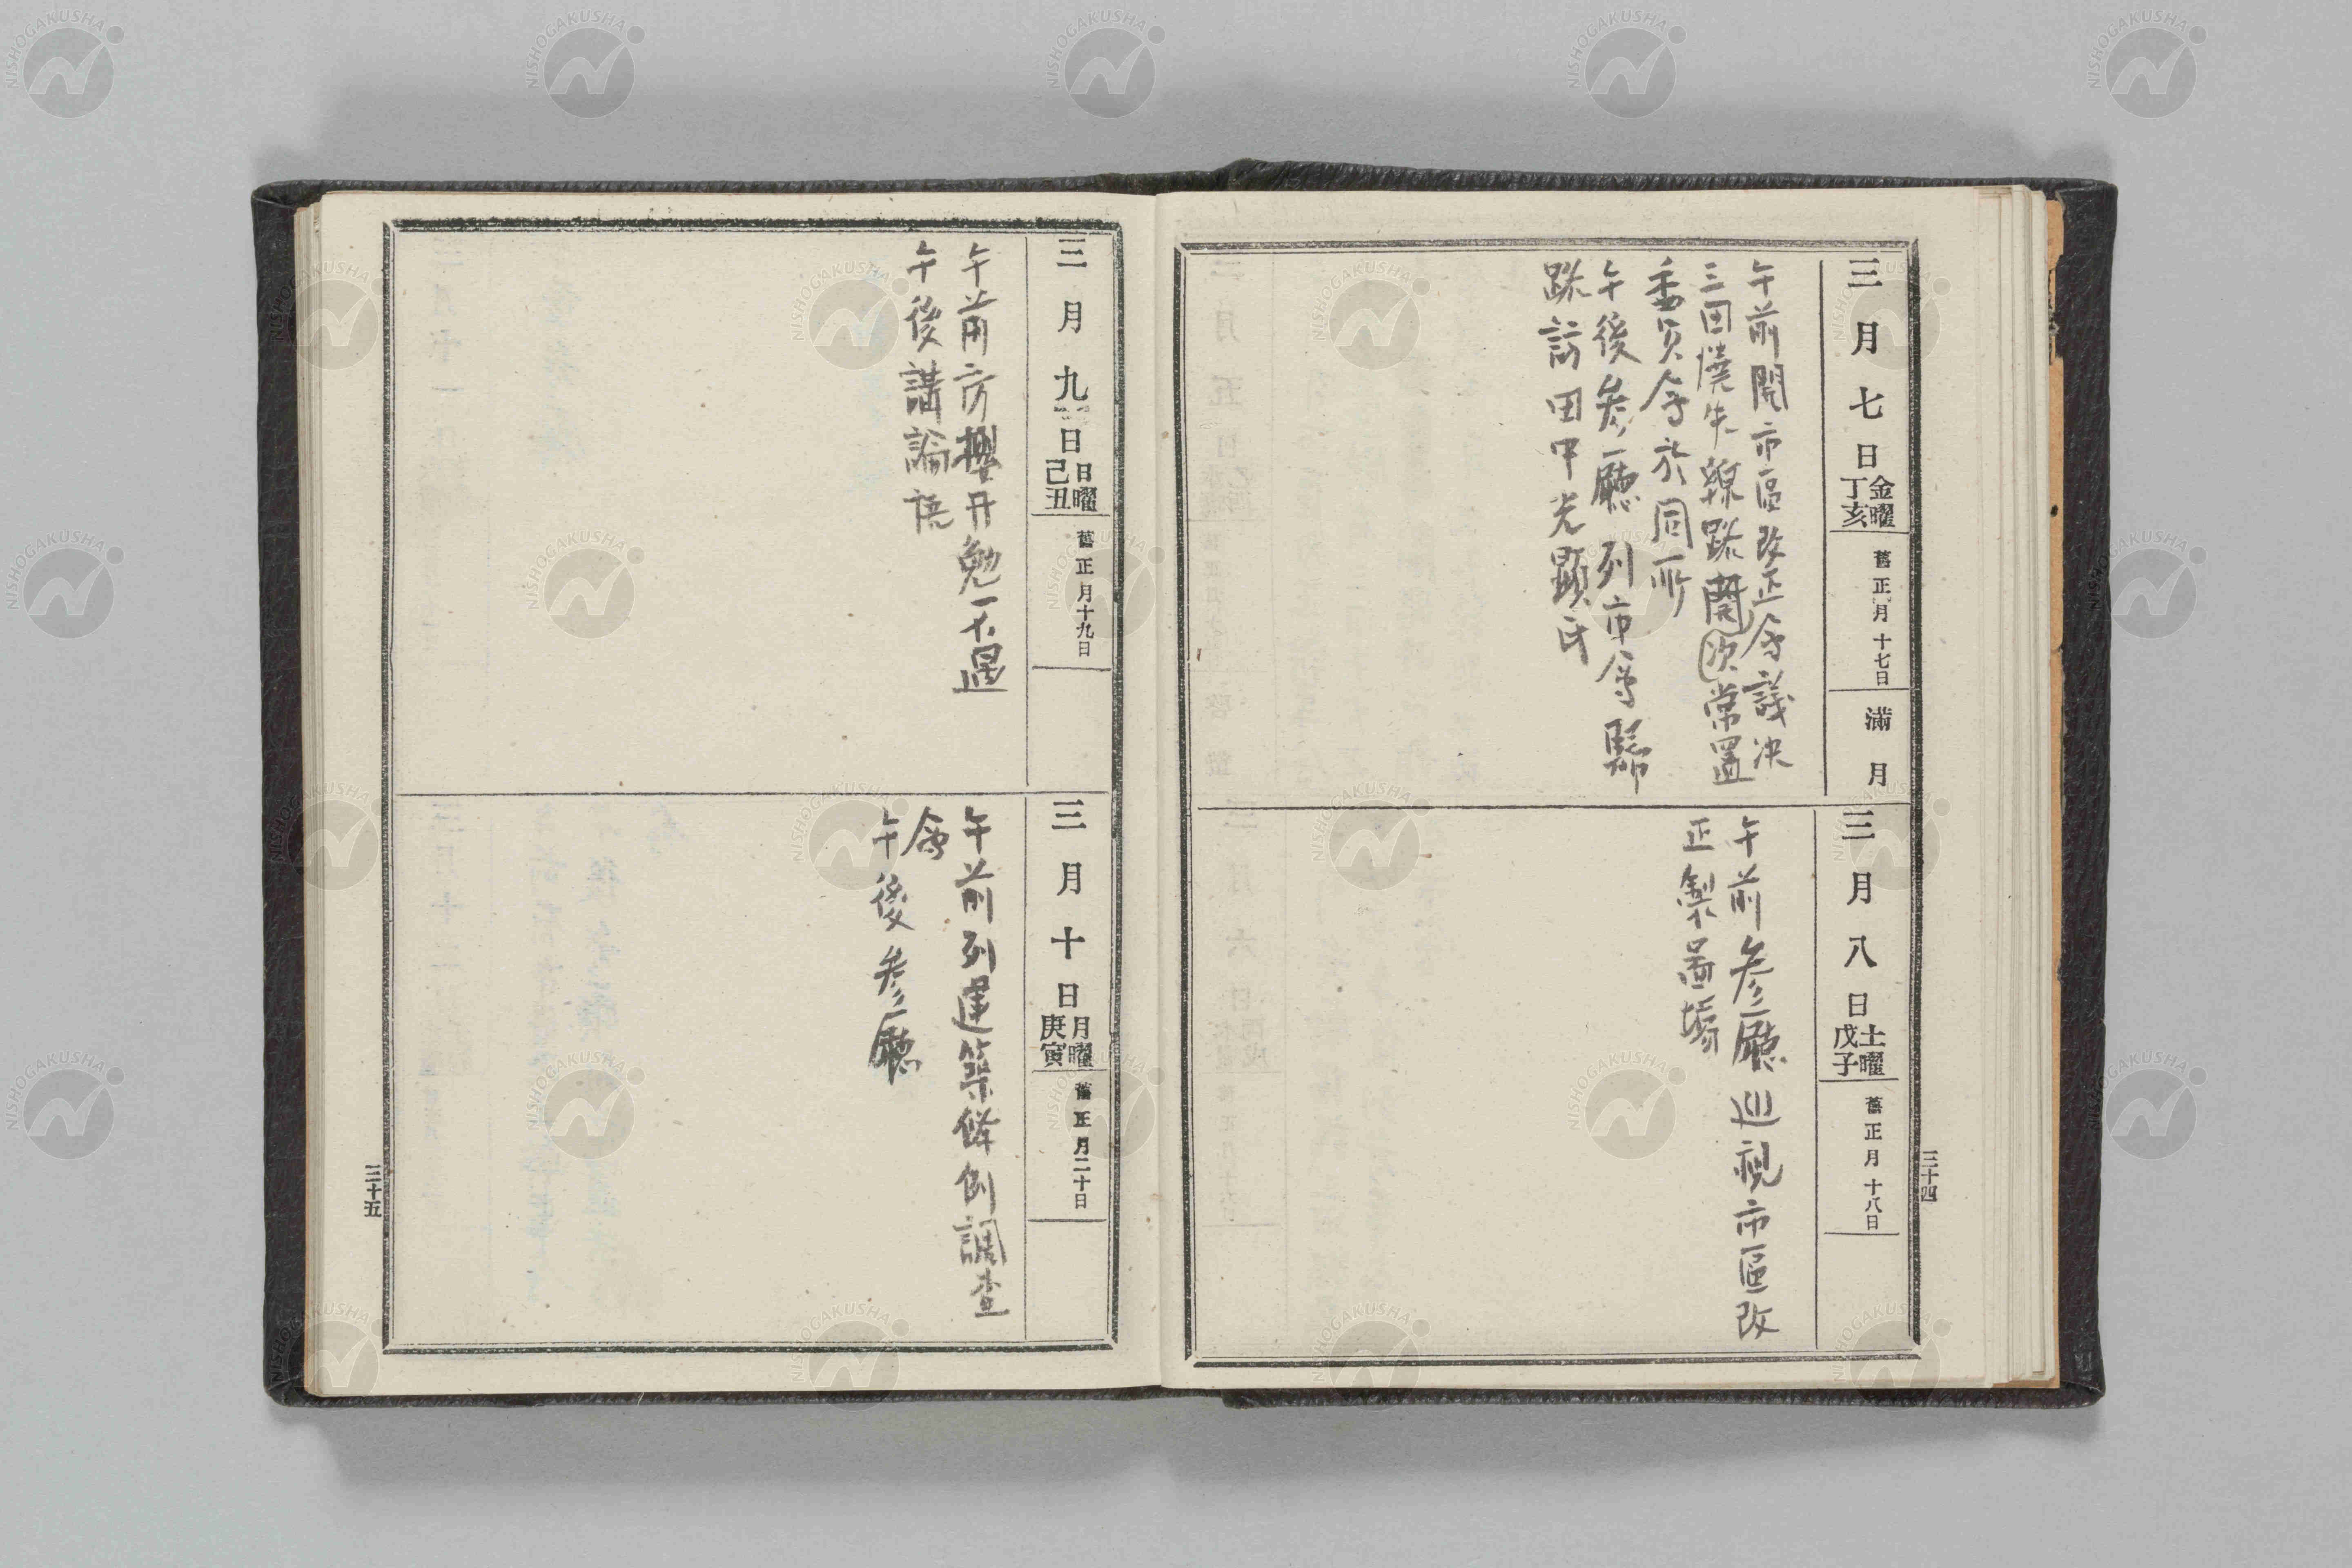 三月七日 金曜 丁亥 舊正月十七日 滿月
午前開市區改正会議决
三田燒失線路開次常置
委員会於同所
午後参廳列市会歸
路訪田中光顯氏
三月八日 土曜 戊子 舊正月十八日
午前参廳巡視市區改
正製圖場
三十四
三月九日 日曜 己丑 舊正月十九日
午前訪櫻井勉不遇
午後講論語
三月十日 月曜 庚寅 舊正月二十日
午前列建築條例調査
会
午後参廳
三十五
NISHOGAKUSHA